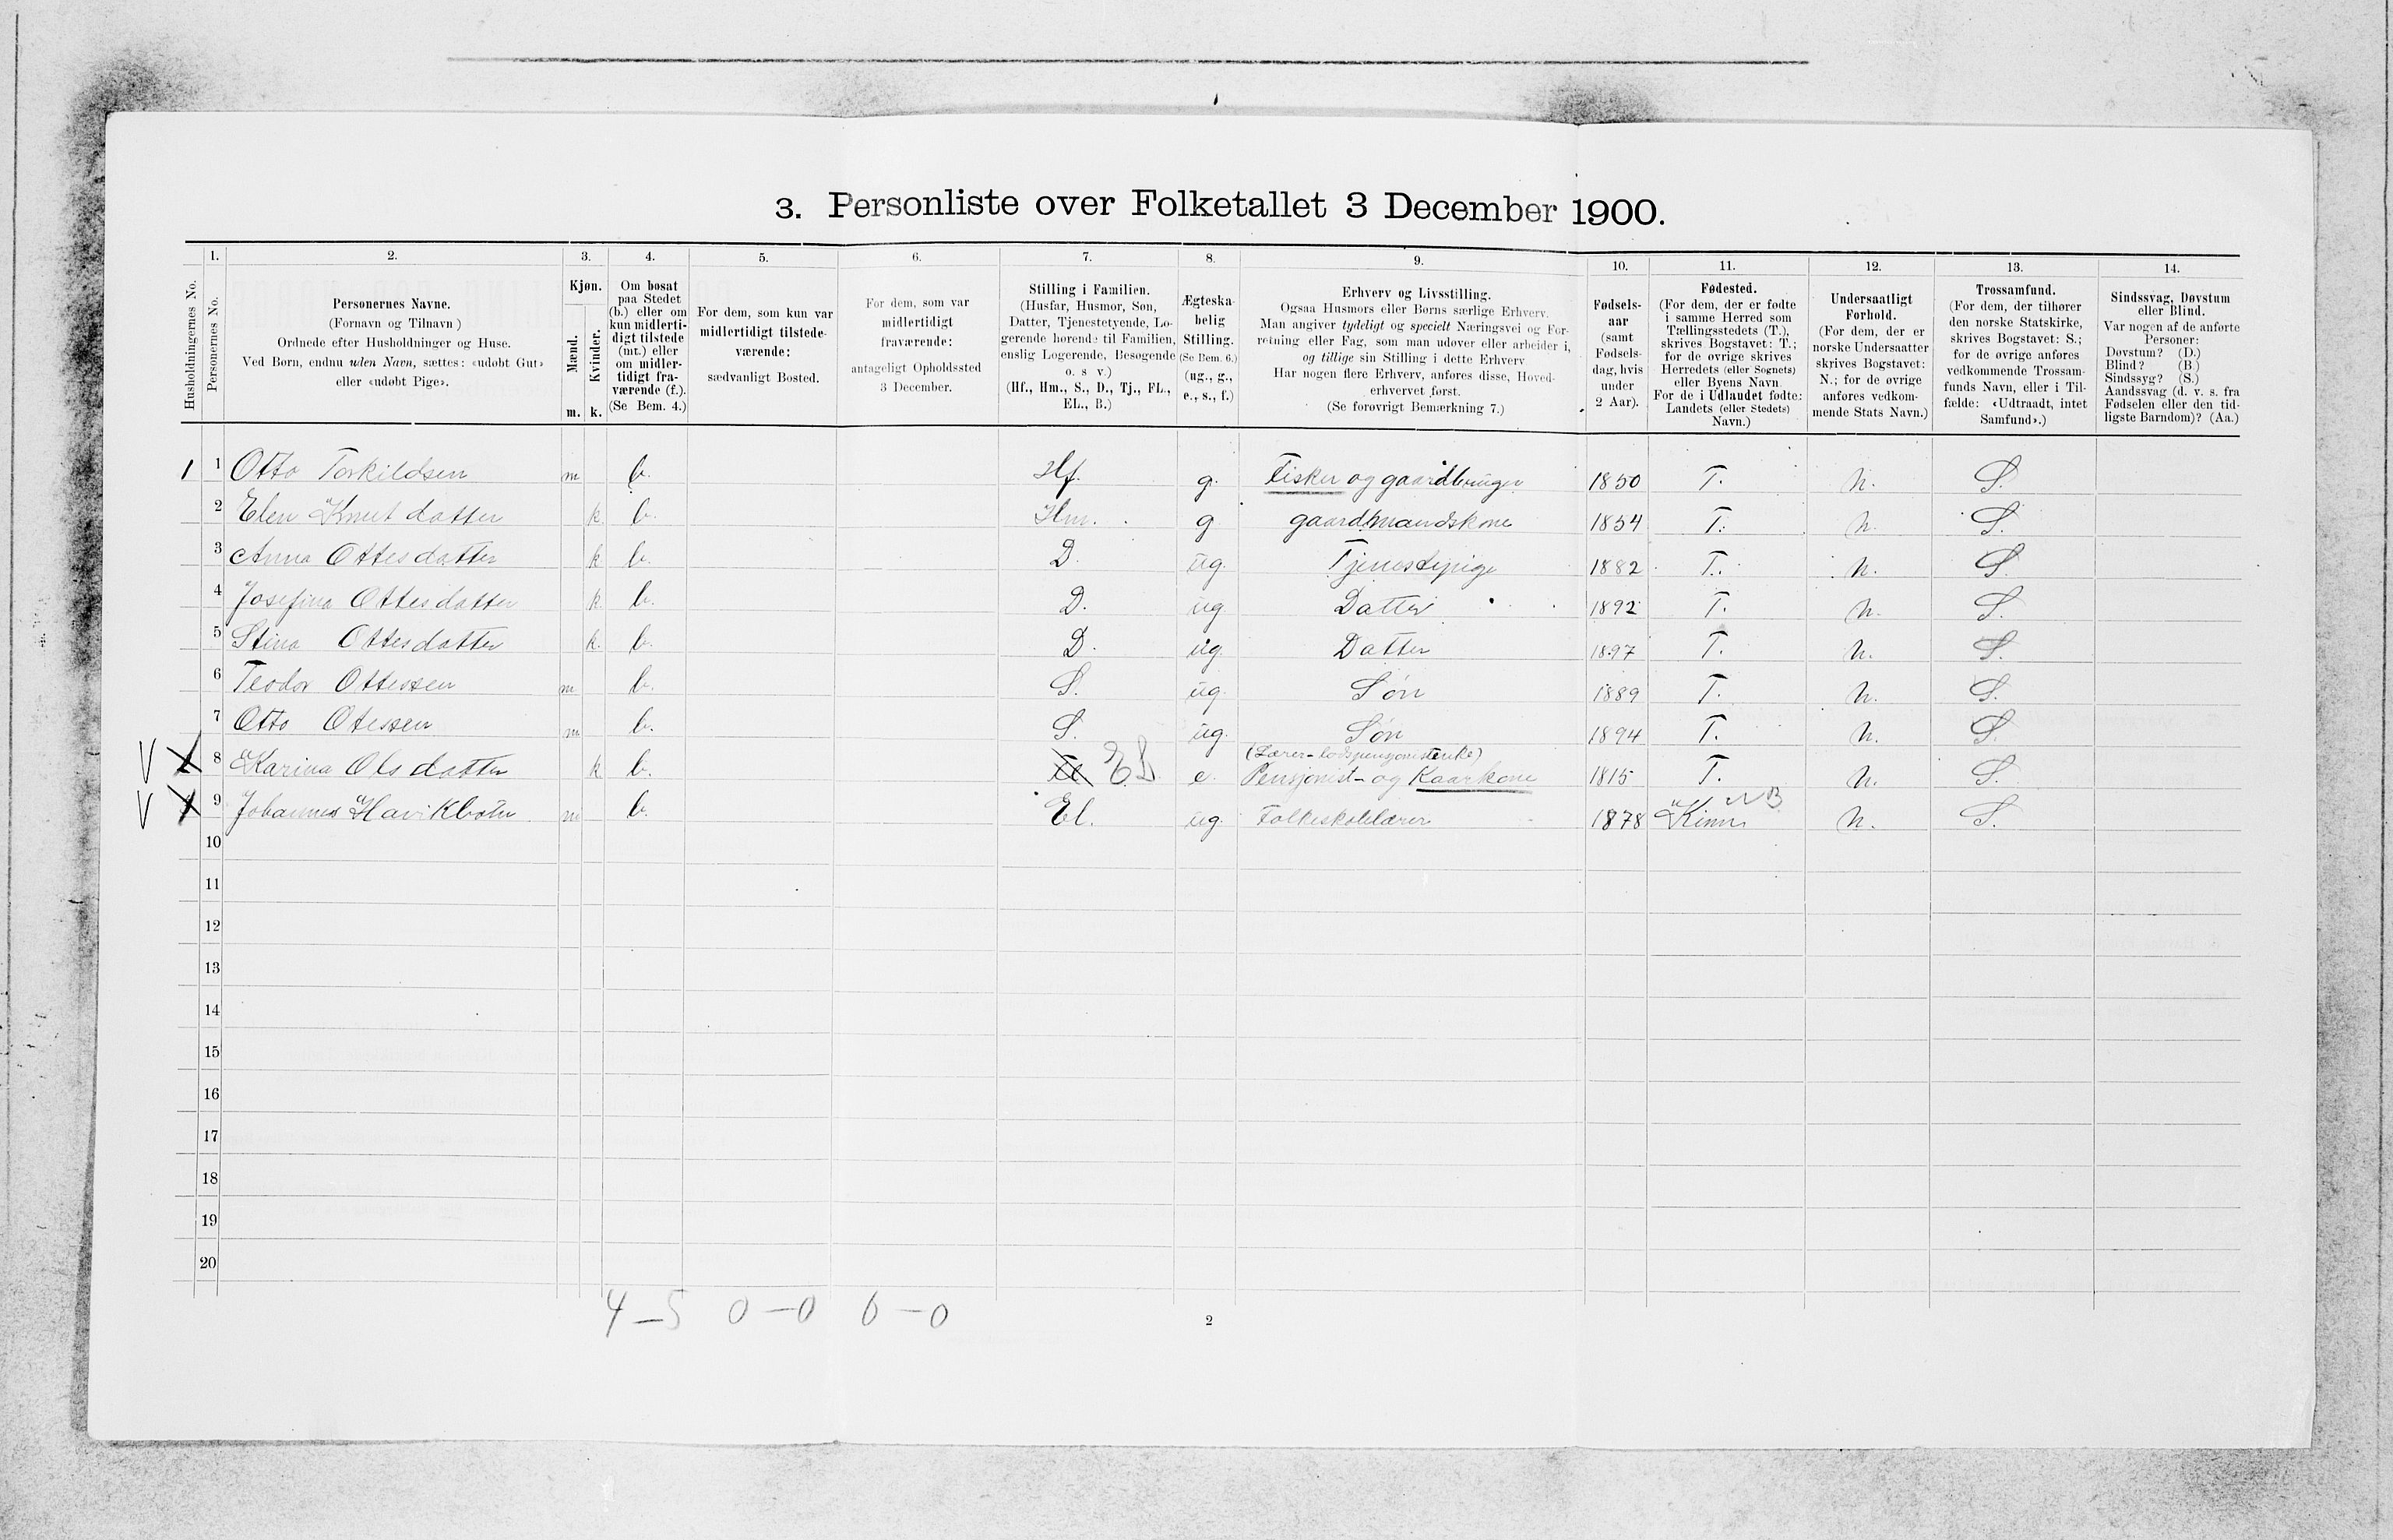 3. Personliste over Folketallet 3 December 1900.
1. 2. 3. 4. 5. 6. 7. 8. 9. 10. 11. 12. 13. 14.
Husholdningernes No.
Personernes No.
Personernes Navne.
(Fornavn og Tilnavn)
Ordnede efter Husholdninger og Huse.
Ved Børn, endnu uden Navn, sættes: «udøbt Gut»
eller «udøbt Pige».
Kjøn.
Mænd.
m.
Kvinder.
k.
Om bosat
paa Stedet
(b.) eller om
kun midlerti-
digt tilstede
(mt.) eller
om midler-
tidigt fra-
værende (f.).
(Se Bem. 4.)
For dem, som kun var
midlertidigt tilstede-
værende:
sædvanligt Bosted.
For dem, som var
midlertidigt
fraværende:
antageligt Opholdssted
3 December.
Stilling i Familien.
(Husfar, Husmor, Søn,
Datter, Tjenestetyende, Lo-
gerende hørende til Familien,
enslig Logerende, Besøgende
o. s v.)
(Hf., Hm., S., D., Tj., FL.,
EL., B.)
Ægteska-
belig
Stilling.
(Se Bem. 6.)
(ug., g.,
e., s., f.)
Erhverv og Livsstilling.
Ogsaa Husmors eller Børns særlige Erhverv.
Man angiver tydeligt og specielt Næringsvei og For-
retning eller Fag, som man udøver eller arbeider i,
og tillige sin Stilling i dette Erhverv
Har nogen flere Erhverv, anføres disse, Hoved-
erhvervet først.
(Se forøvrigt Bemærkning 7.)
Fødsels-
aar
(samt
Fødsels-
dag, hvis
under
2 Aar).
Fødested.
(For dem, der er fødte
i samme Herred som
Tællingsstedets (T.),
skrives Bogstavet: T.;
for de øvrige skrives
Herredets (eller Sognets)
eller Byens Navn
For de i Udlandet fødte:
Landets (eller Stedets)
Navn.)
Undersaatligt
Forhold.
(For dem, der er
norske Undersaatter
skrives Bogstavet:
N.; for de øvrige
anføres vedkom-
mende Stats Navn.)
Trossamfund.
(For dem, der tilhører
den norske Statskirke,
skrives Bogstavet: S.;
for de øvrige anføres
vedkommende Trossam-
funds Navn, eller i Til-
fælde: «Udtraadt, intet
Samfund».)
Sindssvag, Døvstum
eller Blind.
Var nogen af de anførte
Personer:
Døvstum? (D.)
Blind? (B.)
Sindssyg? (S.)
Aandssvag (d. v. s. fra
Fødselen eller den tid-
ligste Barndom)? (Aa.)
1 1 Otto Torkildsen m b. Hf. g. Fisker og gaardbruger 1850 T. n. S.
2 Elen Knut datter k b. Hm. g gaardmandskone 1854 T. n. S.
3 Anna Ottesdatter k b. D. ug. Tjenestepige 1882 T. n. S.
4 Josefina Ottesdatter k. b. D. ug. Datter 1892 T. n. S.
5 Stina Ottesdatter k. b. D. ug. Datter 1897 T. n. S.
6 Teodor Ottessen m b. S. ug. Søn 1889 T. n. S.
7 Otto Otessen m b. S. ug. Søn 1894 T. n. S.
8 Karina Olsdatter k b. EL e. Pensjonist- og Kaarkone 1815 T. n. S.
9 Johannes m b. El. ug. Folkeskolelærer 1878 Kinn n. S.
10
11
12
13
14
15
16
17
18
19
20
4—5 0—0 0—0
2